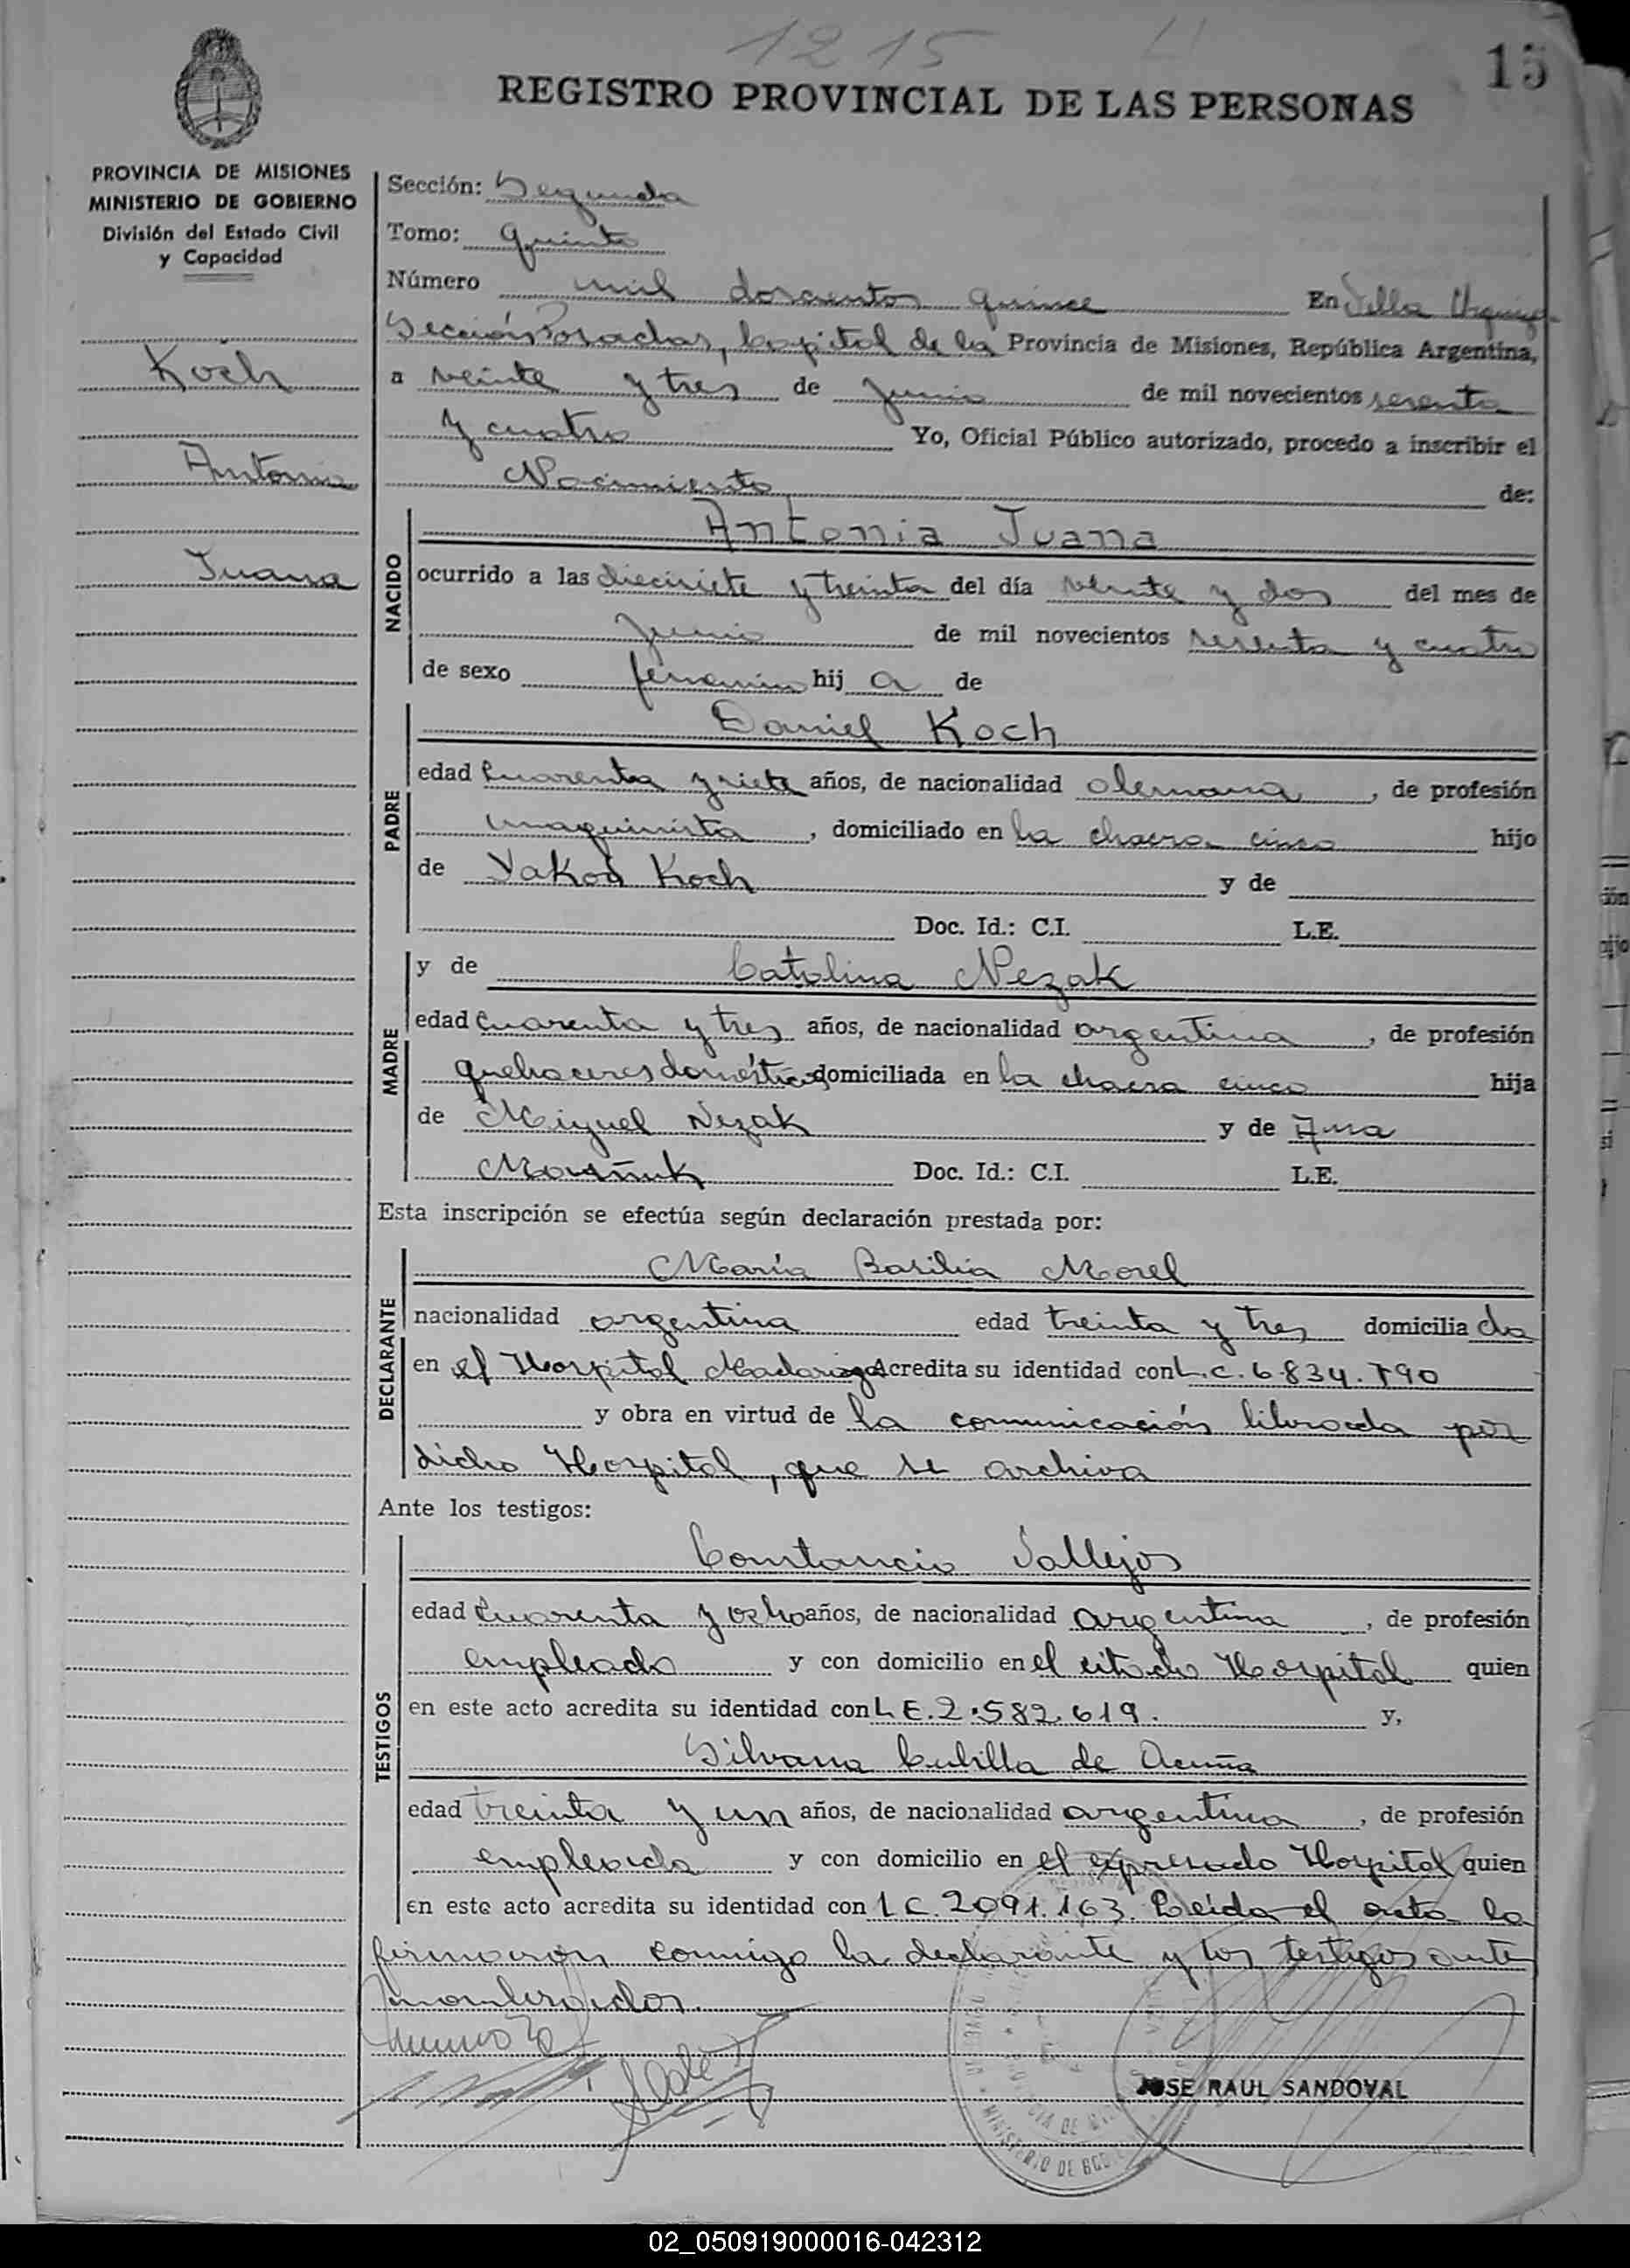 1215
15
REGISTRO PROVINCIAL DE LAS PERSONAS
PROVINCIA DE MISIONES
MINISTERIO DE GOBIERNO
División del Estado Civil
y Capacidad
Koch
Antonia
Juana
Sección: Segunda
Tomo: Quinto
Número mil doscientos quince En Villa Urquiza
Sección Posadas, Capital de la Provincia de Misiones, República Argentina,
a veinte y tres de junio de mil novecientos sesenta
y cuatro Yo, Oficial Público autorizado, procedo a inscribir el
Nacimiento de:
NACIDO
Antonia Juana
ocurrido a las diecisiete y treinta del día veinte y dos del mes de
junio de mil novecientos sesenta y cuatro
de sexo femenino hij a de
PADRE
Daniel Koch
edad cuarenta y siete años, de nacionalidad alemana, de profesión
maquinista, domiciliado en la chacra cinco hijo
de Yakob Koch y de
Doc. Id.: C.I. L.E.
MADRE
y de Catalina Nezak
edad cuarenta y tres años, de nacionalidad argentina, de profesión
quehaceres domésticos domiciliada en la chacra cinco hija
de Miguel Nezak y de Ana
Doc. Id.: C.I. L.E.
Esta inscripción se efectúa según declaración prestada por:
DECLARANTE
María Basilia Morel
nacionalidad argentina edad treinta y tres domicilia da
en el Hospital Madariaga Acredita su identidad con L.C. 6.834.790
y obra en virtud de la comunicación librada por
dicho Hospital, que se archiva
Ante los testigos:
TESTIGOS
Constancio Vallejos
edad cuarenta y ocho años, de nacionalidad argentina, de profesión
empleado y con domicilio en el citado Hospital quien
en este acto acredita su identidad con L.E. 2.582.619. y,
Silvana Cubilla de Acuña
edad treinta y un años, de nacionalidad argentina, de profesión
empleada y con domicilio en el expresado Hospital quien
en este acto acredita su identidad con L.C. 2091.163. Leída el acta la
firmaron conmigo la declarante y los testigos ante
nombrados.
JOSE RAUL SANDOVAL
MINISTERIO DE GOB
02_050919000016-042312